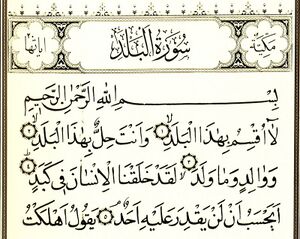 مكية سورة البلد اياتها ٢٠
بسم الله الرحمن الرحيم
لا أقسم بهذا البلد ۝ وأنت حل بهذا البلد ۝
ووالد وما ولد ۝ لقد خلقنا الإنسان في كبد ۝
أيحسب أن لن يقدر عليه أحد ۝ يقول أهلكت